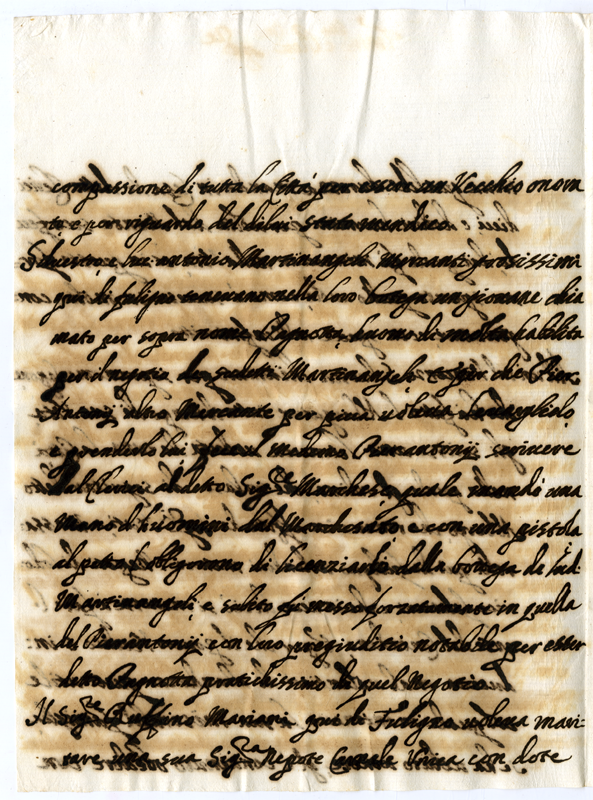 compassione di tutta la Città per essere un Vecchio onora
to e per riguardo del
Silvestro e luc antonio Martinangeli Mercanti grossissimi
qui di fuligno tenevano nella loro bottega un giovane chia
mato per sopra nome Pagnotta, huomo di molta habilità
per il negotio de sudetti Martinangeli e per che Pier
Antonij altro Mercante per pura voleva
e prenderlo lui fece al medemo Pierantonij scrivere
dal al detto Sig.re Marchese, quale mandò una
mano d'huomini dal Marchesato e con una pistola
al petto l'obligorono di licenziarlo dalla bottega de sud.i
Martinangeli e subito fu messo forzatamente in quella
del Pierantonij con loro pregiuditio notabile per esser
detto Pagnotta pratichissimo di quel Negotio
Il Sig.re Ruffino Mariani qui di Fuligno voleva mari-
tare una sua Sig.ra Nepote Carnale Unica con dote